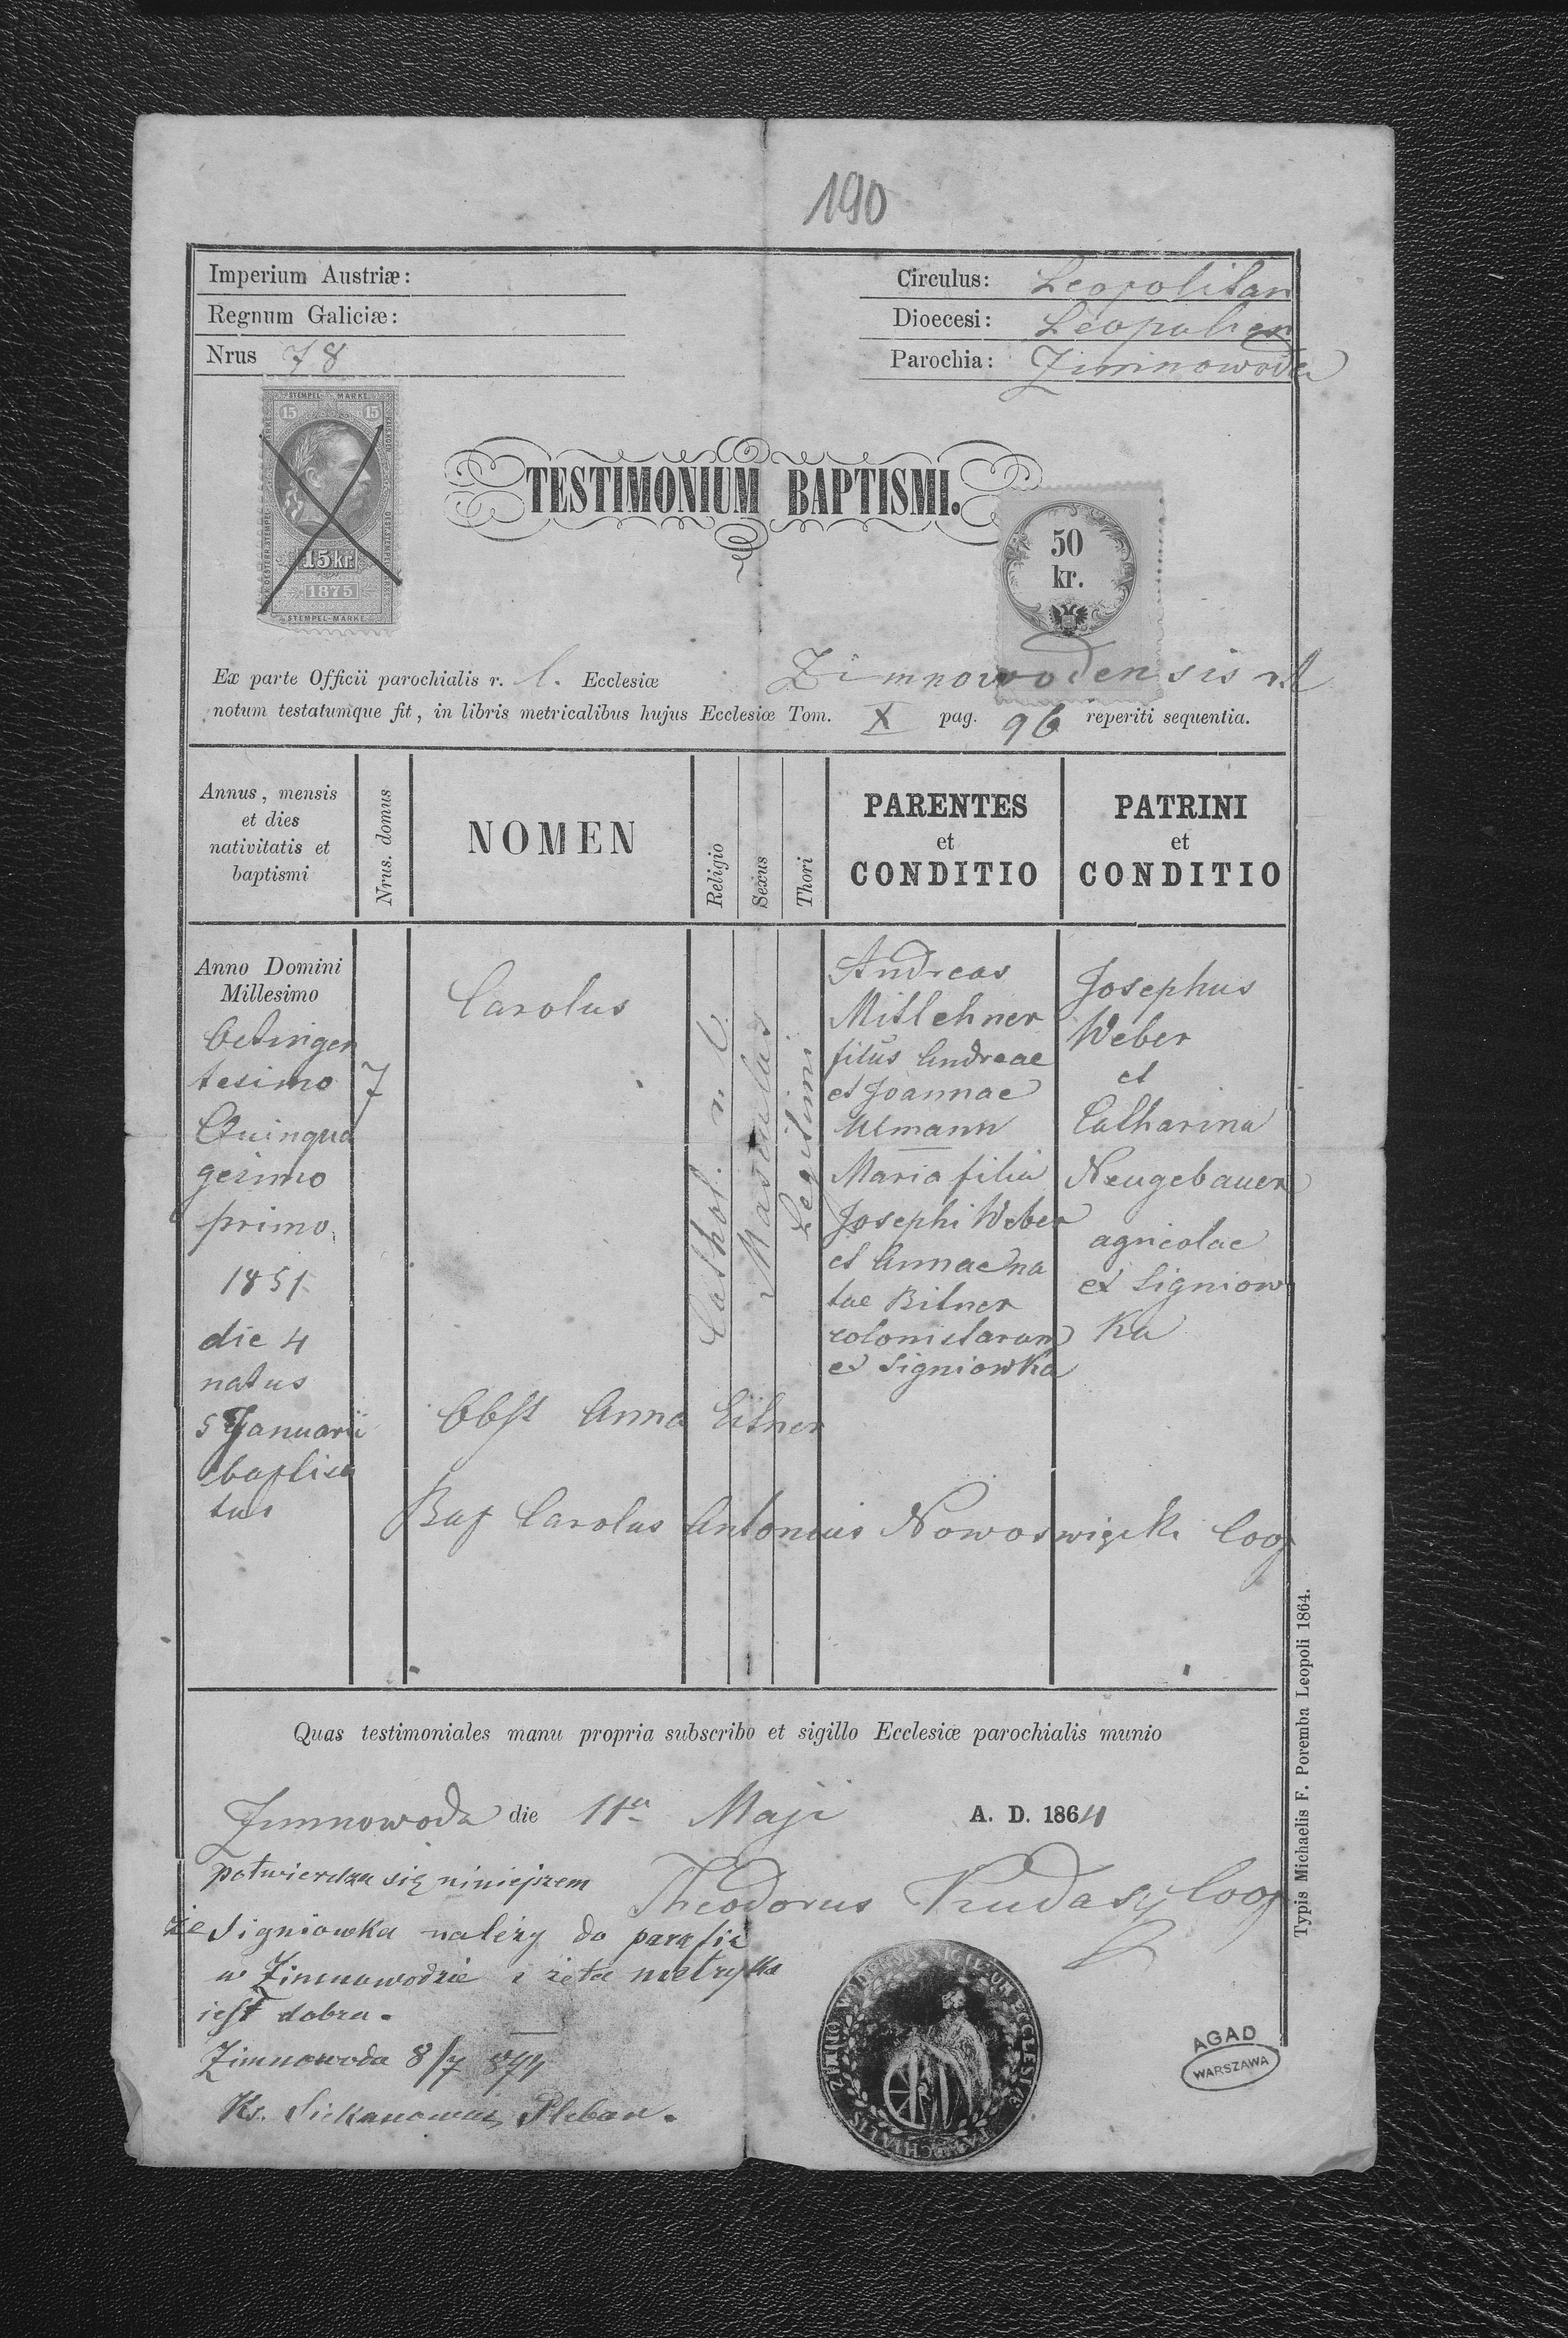 190
Imperium Austriæ:
Regnum Galiciæ:
Nrus 78
Circulus: Leopolitan
Dioecesi: Leopolien
Parochia: Zimnowoda
STEMPEL-MARKE
15 15
15 kr.
1875
STEMPEL-MARKE
TESTIMONIUM BAPTISMI.
50
kr.
Ex parte Officii parochialis r. l. Ecclesiæ Zimnowodensis
notum testatumque fit, in libris metricalibus hujus Ecclesiæ Tom. X pag. 96 reperiti sequentia.
Annus, mensis
et dies
nativitatis et
baptismi
Nrus. domus
NOMEN
Religio
Sexus
Thori
PARENTES
et
CONDITIO
PATRINI
et
CONDITIO
Anno Domini
Millesimo
Octingen
tesimo
Quinqua
gesimo
primo
1851
die 4
natus
5 Januarii
baptisa
tus
7
Carolus
Cathol. r. l.
Masculus
Legitimi
Andreas
Mitlehner
filius Andreae
et Joannae
Ulmann
Maria filia
Josephi Weber
et Annae na
tae Bitner
colonistarum
ex Signiowka
Josephus
Weber
et
Catharina
Neugebauer
agricolae
ex Signiow
ka
Obst Anna
Bap Carolus Antonius Coop
Quas testimoniales manu propria subscribo et sigillo Ecclesiæ parochialis munio
Zimnowoda die 11a Maji A. D. 1864
Theodorus Coop
potwierdza się niniejszem
że Signiowka należy do parafii
w Zimnowodzie i że ta metryka
jest dobra.
Zimnowoda 8/7 877
Ks. Pleban.
SIGILLUM ECCLESIÆ PAROCHIALIS
AGAD
WARSZAWA
Typis Michaelis F. Poremba Leopoli 1864.